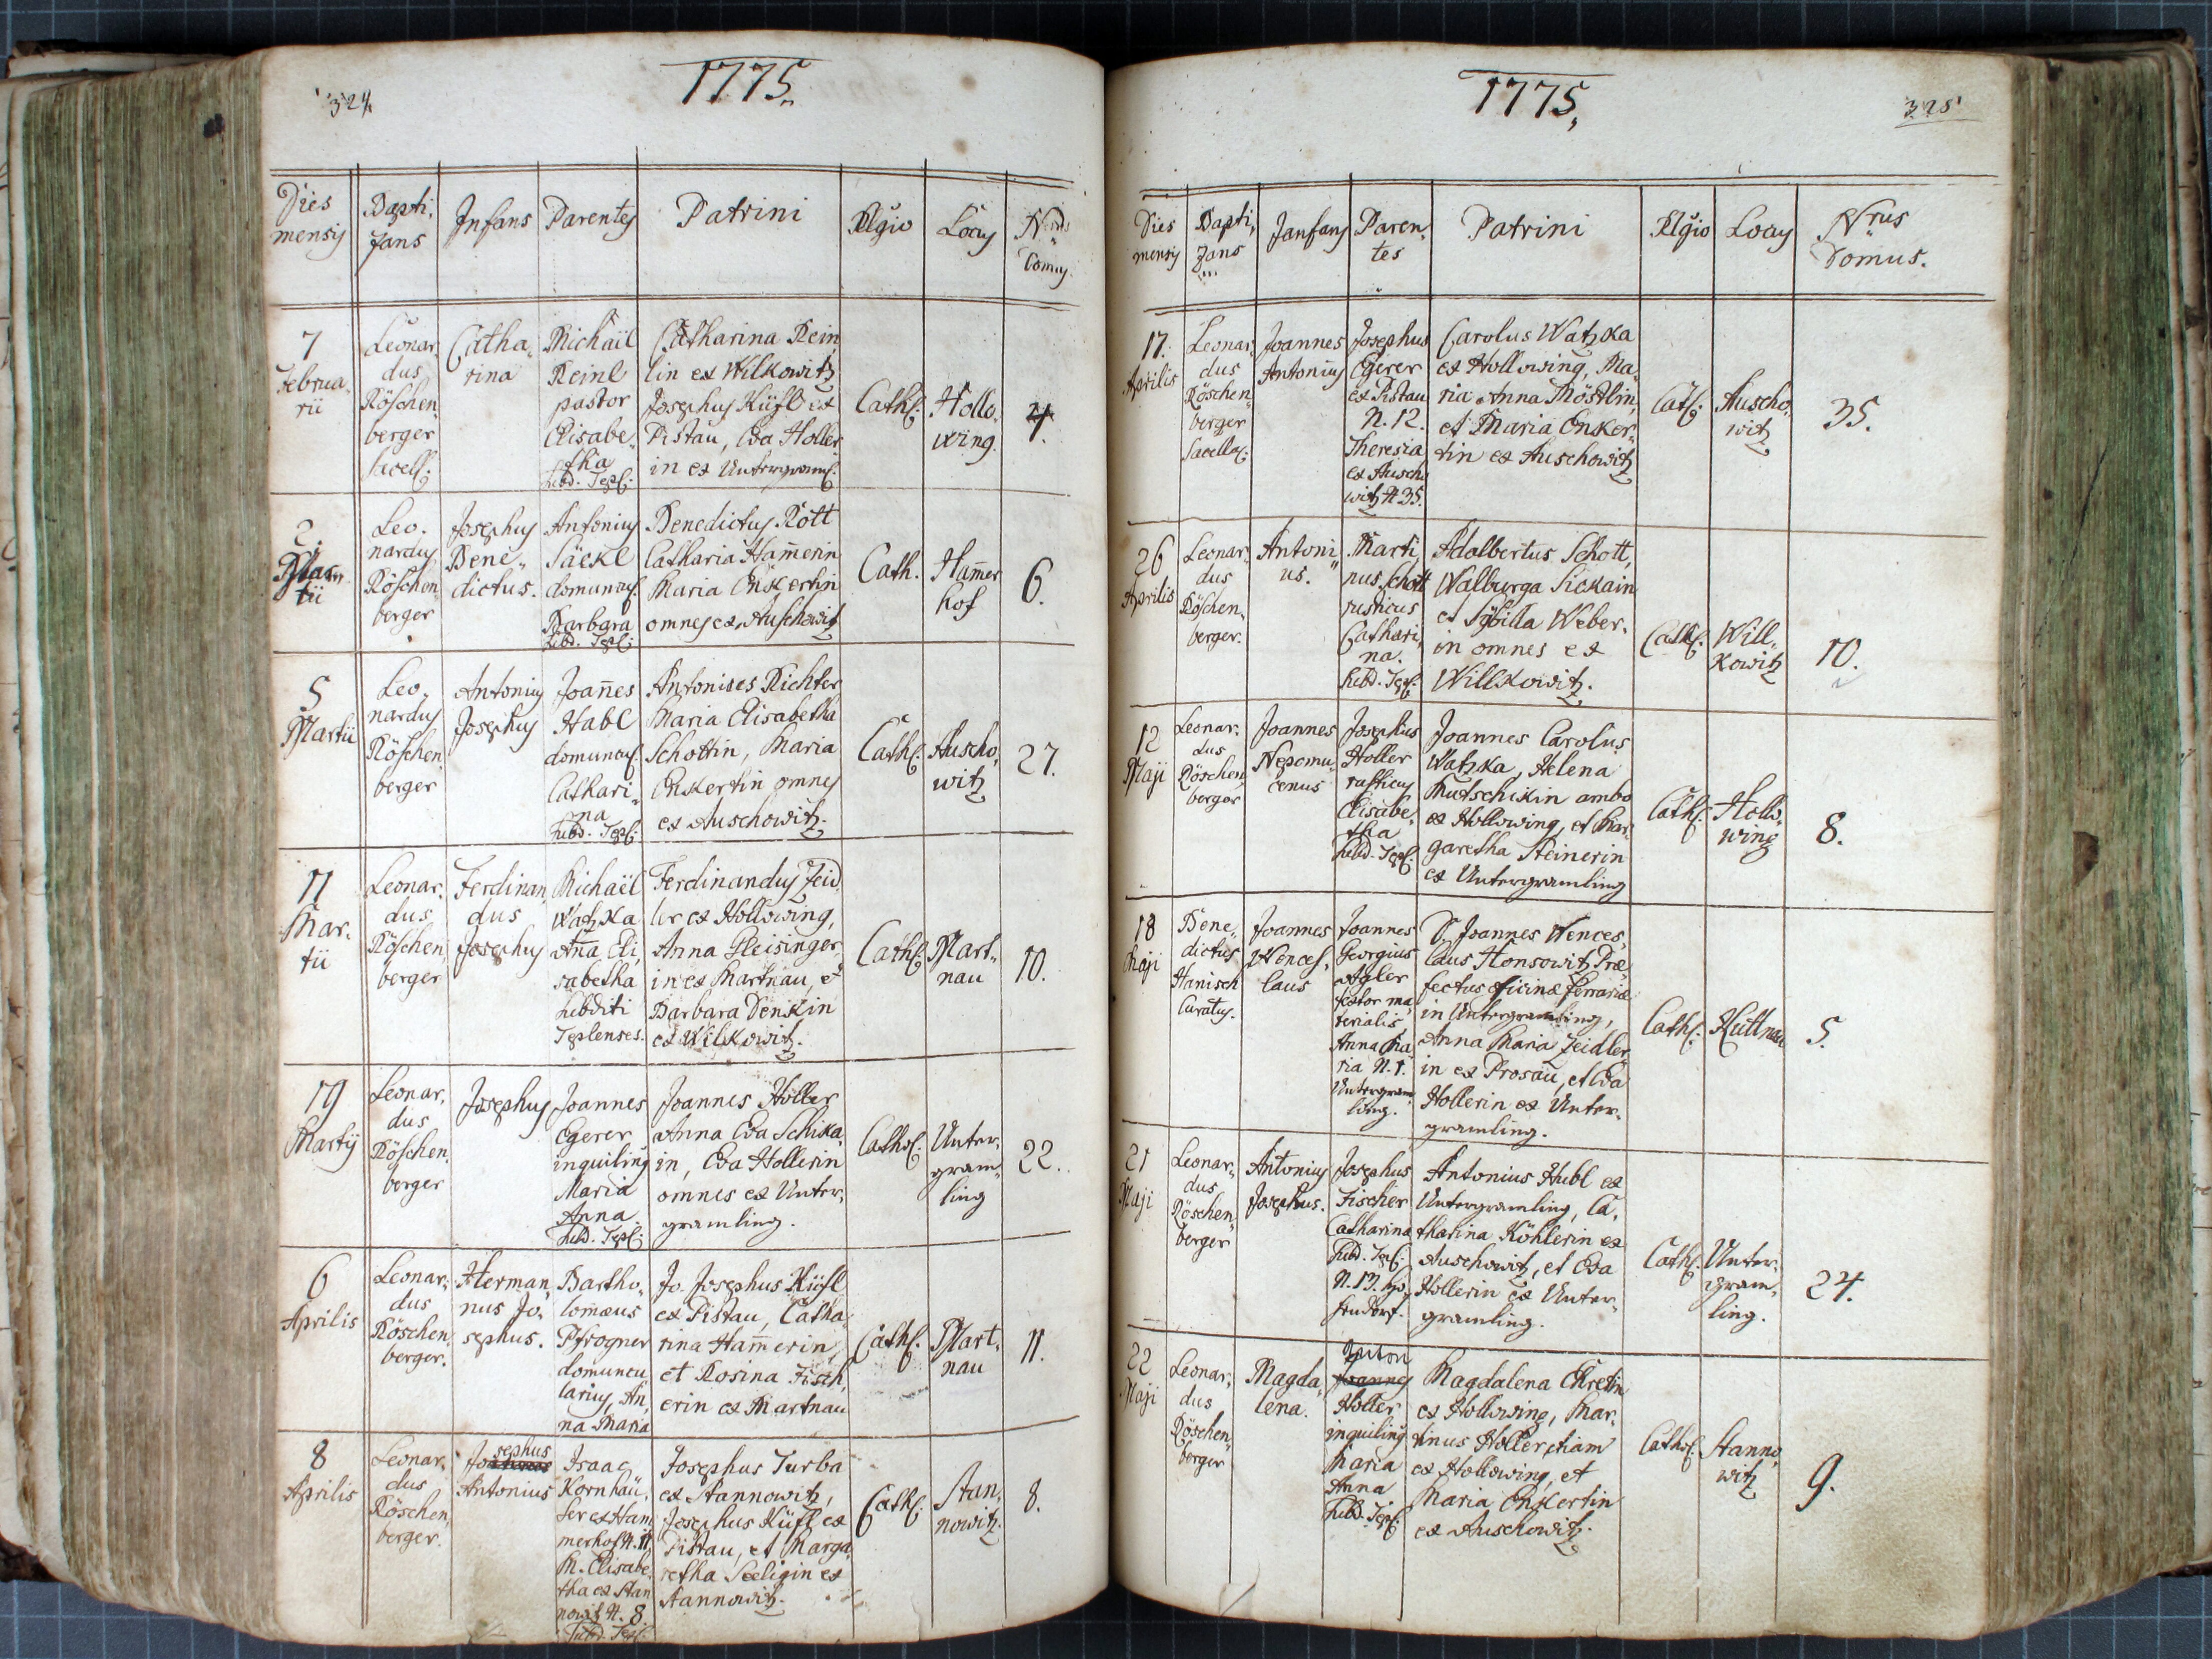 324.
1775.
Dies mensis
Baptizans
Infans
Parentes
Patrini
Religio
Locus
Nrus Domus
7 Februarii
Leonar,
dus
Röschen,
berger
Catha,
rina
Michaël
Reinl
pastor
Elisabe,
tha
Catharina Rein
lin ex Wilkowitz
Josephus Küfl ex
Pistau, Eva Holler
in ex Untergraml:
Cath:
Hollo,
wing.
2. Martii
Leo,
nardus
Röschen
berger
Josephus
Bene,,
dictus.
Antonius
Säckl
domunc:
Barbara
Subd. Tepl:
Benedictus Rott
Catharia Ham̄erin
Maria Enkertin
omnes ex Auschowitz
Cath.
Ham̄er
hof
6.
5
Martii
Leo,
nardus
Röschen
berger
Antonius
Josephus
Joan̄es
Habl
domuncu:
Cathari,
na
Subd. Tepl:
Antonises Richter
Maria Elisabetha
Schottin, Maria
Enkertin omnes
ex Auschowitz.
Cath:
Auscho,
witz
27.
11
Mar,
tii
Leonar,
dus
Röschen
berger
Ferdinan,
dus
Josephus
Michaël
Watzka
An̄a Eli,
sabetha
Subditi
Teplenses.
Ferdinandus Zeid
ler ex Hollowing,
Anna Gleisinger
in ex Martnau, et
Barbara Denkin
ex Wilkowitz.
Cath:
Mart,,
nau
10.
19
Martij
Leonar,
dus
Röschen,
berger
Josephus
Joannes
Egerer
inquilinus
Maria
Anna
Subd. Tepl:
Joannes Holler
Anna Eva Schika,
in, Eva Hollerin
omnes ex Unter,
gramling.
Cathol:
Unter,
gram,
ling
22.
6
Aprilis
Leonar,
dus
Röschen
berger.
Herman,
nus Jo,
sephus.
Bartho,
lomæus
Pfrogner
domuncu
larius, An,
na Maria
Jo. Josephus Küfl
ex Pistau, Catha,
rina Ham̄erin,
et Rosina Fisch,
erin ex Martnau
Cath:
Mart,
nau
11.
8
Aprilis
Leonar,
dus
Röschen,
berger.
Josephus
Antonius
Isaac
Kornhäu,
ser ex Ham
merhof N. 11
M. Elisabe,
tha ex Stan
nowitz N. 8.
Subd. Tepl:
Josephus Turba
ex Stannowitz,
Josephus Küfl ex
Pistau, et Marga,
retha Seeligin ex
Stannowitz.
Cath:
Stan,
nowitz.
8.
1775,
325
Dies mensis
Bapti,,
zans
Janfans
Paren,
tes
Patrini
Religio
Locus
Nrus
Domus.
17.
Aprilis
Leonar,
dus
Röschen,,
berger
Sacellan:
Joannes
Antonius
Josephus
Egerer
ex Pistau
N. 12.
Theresia
ex Auscho
witz N 35.
Carolus Watzka
ex Hollowing, Ma,
ria Anna Möstlin,
et Maria Enker,,
tin ex Auschowitz
Cath:
Auscho,
witz
35.
26
Aprilis
Leonar,,
dus
Röschen,
berger.
Antoni,,
us.
Marti,
nus Schott
rusticus
Cathari,
na.
Subd. Tepl:
Adalbertus Schott,
Walburga Sickain
et Sybilla Weber,
in omnes ex
Willkowitz.
Cath:
Will,,
kowitz
10.
12
Maji
Leonar,
dus
Röschen,
berger
Joannes
Nepomu,
cenus
Josephus
Holler
rusticus
Elisabe,
tha
Subd. Tepl:
Joannes Carolus
Watzka, Helena
Mutschikin ambo
ex Hollowing, et Mar,
garetha Steinerin
ex Untergramling
Cath:
Hollo,
wing
8.
18
Maji
Bene,,
dictus
Hanisch
Curatus.
Joannes
Wences,
laus
Joannes
Georgius
Agler
ma,
terialis
Anna Ma,
ria N. 1.
Untergram
ling.
Joannes Wences,
laus Honsowitz Præ,
fectus officinæ ferrariæ
in Untergramling,
Anna Maria Zeidler,
in ex Prosau, et Eva
Hollerin ex Unter,
gramling.
Cath:
Kuttnau
5.
21
Maji
Leonar,,
dus
Röschen,,
berger
Antonius
Josephus.
Josephus
Fischer
Catharina
Subd. Tepl:
N. 13.
Antonius Hubl ex
Untergramling, Ca,
tharina Köhlerin ex
Auschowitz, et Eva
Hollerin ex Unter,,
gramling.
Cath:
Unter,
gram,
ling.
24.
22
Maji
Leonar,
dus
Röschen,,
berger
Magda,
lena.
Anton
Joannes
Holler
inquilinus
Maria
Anna
Subd. Tepl:
Magdalena
ex Hollowing, Mar,
tinus Holler etiam
ex Hollowing, et
Maria Enkertin
ex Auschowitz.
Cathol:
Stanno
witz
9.